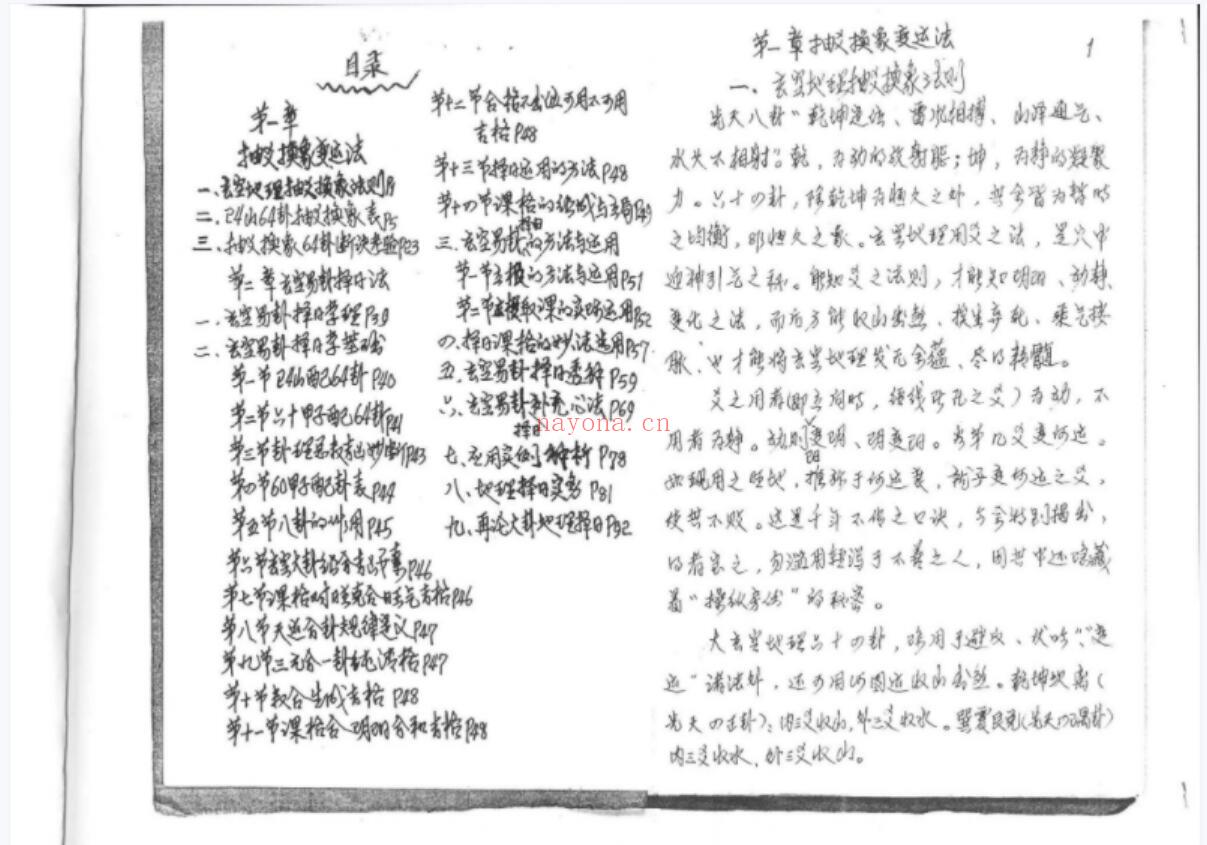 目录
第一章
抽爻换象变运法
一、玄空地理抽爻换象法则P1
二、24山64卦抽爻换象表P5
三、抽爻换象64卦断决考验P23
第二章玄空易卦择日法
一、玄空易卦择日学理P39
二、玄空易卦择日学基础
第一节24山配64卦P40
第二节六十甲子配64卦P41
第三节卦理爻数 妙断P43
第四节60甲子配卦表P44
第五节八卦的作用P45
第六节玄空大卦 合 P46
第七节课格 生克合旺气吉格P46
第八节天运合卦规律定义P47
第九节三元合一卦纯清格P47
第十节数合生成吉格P48
第十一节课格合阴阳合和吉格P48
第十二节合格不出位可用不可用
吉格P48
第十三节择日运用的方法P48
第十四节课格的组成与 局P49
择日
三、玄空易卦的方法与运用
第一节 的方法与运用P51
第二节 取课的实际运用P52
四、择日课格的妙法选用P57
五、玄空易卦择日透解P59
六、玄空易卦补充心法P69
择日
七、应用实例解析P78
八、地理择日实务P81
九、再论大卦地理择日P92
nayona.cn
1
第一章抽爻换象变运法
一、玄空地理抽爻换象法则
先天八卦“乾坤定位、雷风相搏、山泽通气、
水火不相射”。乾,为动的放射能;坤,为静的凝聚
力。六十四卦,除乾坤为恒久之外,其余皆为暂时
之均衡,非恒久之象。玄空地理用爻之法,是穴中
迎神引气之秘。能知爻之法则,才能知阴阳、动静、
变化之法,而后方能收山出煞、趋生弃死、乘气接
脉、也才能将玄空地理发尤余蕴、尽的精髓。
爻之用者(即立向时,结线所在之爻)为动,不
用者为静。动则变阴、阴变阳。考第几爻变何运。
阳
如现用之阴地,推移于何运衰,就予变何运之爻,
使其不败。这是千年不传之口诀,今余特别揭出,
的者宝之,勿滥用轻泄于不善之人,因其中还隐藏
着“操纵身体”的秘密。
大玄空地理六十四卦,除用于避反、伏吟“、”变
运”诸法外,还可用何图运收山出煞。乾坤坎离(
先天四正卦):内三爻收山,外三爻收水。巽震艮兑(先天四隅卦)
内三爻收水,外三爻收山。